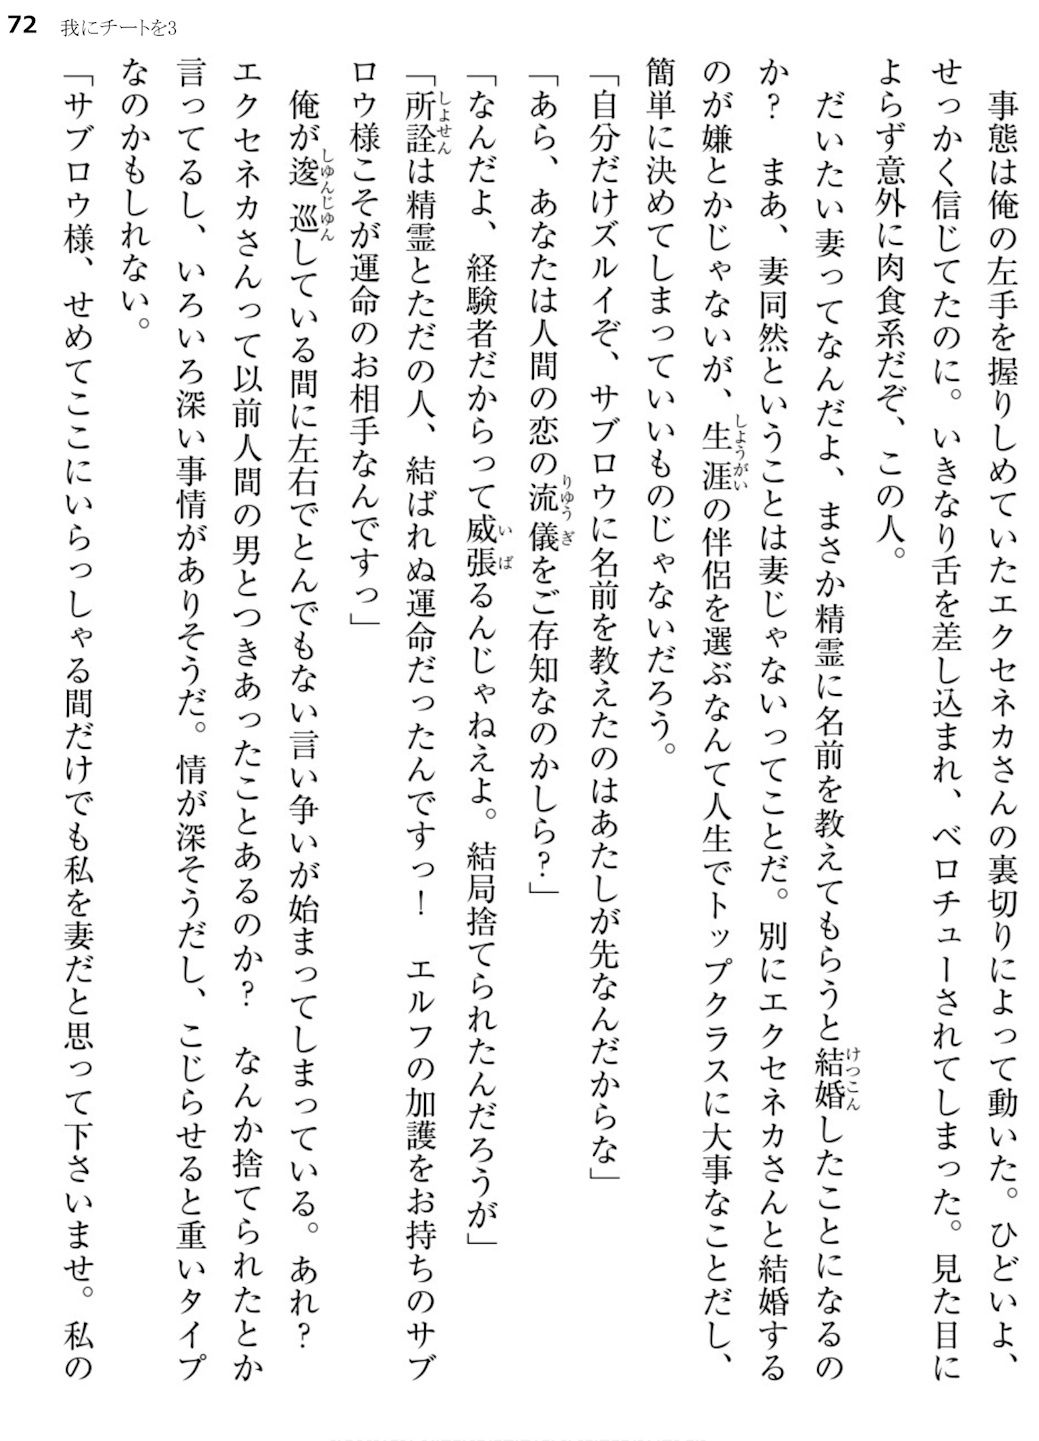 72 我にチートを3
　事態は俺の左手を握りしめていたエクセネカさんの裏切りによって動いた。ひどいよ、
せっかく信じてたのに。いきなり舌を差し込まれ、ベロチューされてしまった。見た目に
よらず意外に肉食系だぞ、この人。
　だいたい妻ってなんだよ、まさか精霊に名前を教えてもらうと結婚したことになるの
か？　まあ、妻同然ということは妻じゃないってことだ。別にエクセネカさんと結婚する
のが嫌とかじゃないが、生涯の伴侶を選ぶなんて人生でトップクラスに大事なことだし、
簡単に決めてしまっていいものじゃないだろう。
「自分だけズルイぞ、サブロウに名前を教えたのはあたしが先なんだからな」
「あら、あなたは人間の恋の流儀をご存知なのかしら？」
「なんだよ、経験者だからって威張るんじゃねえよ。結局捨てられたんだろうが」
「所詮は精霊とただの人、結ばれぬ運命だったんですっ！　エルフの加護をお持ちのサブ
ロウ様こそが運命のお相手なんですっ」
　俺が逡巡している間に左右でとんでもない言い争いが始まってしまっている。あれ？
エクセネカさんって以前人間の男とつきあったことあるのか？　なんか捨てられたとか
言ってるし、いろいろ深い事情がありそうだ。情が深そうだし、こじらせると重いタイプ
なのかもしれない。
「サブロウ様、せめてここにいらっしゃる間だけでも私を妻だと思って下さいませ。私の